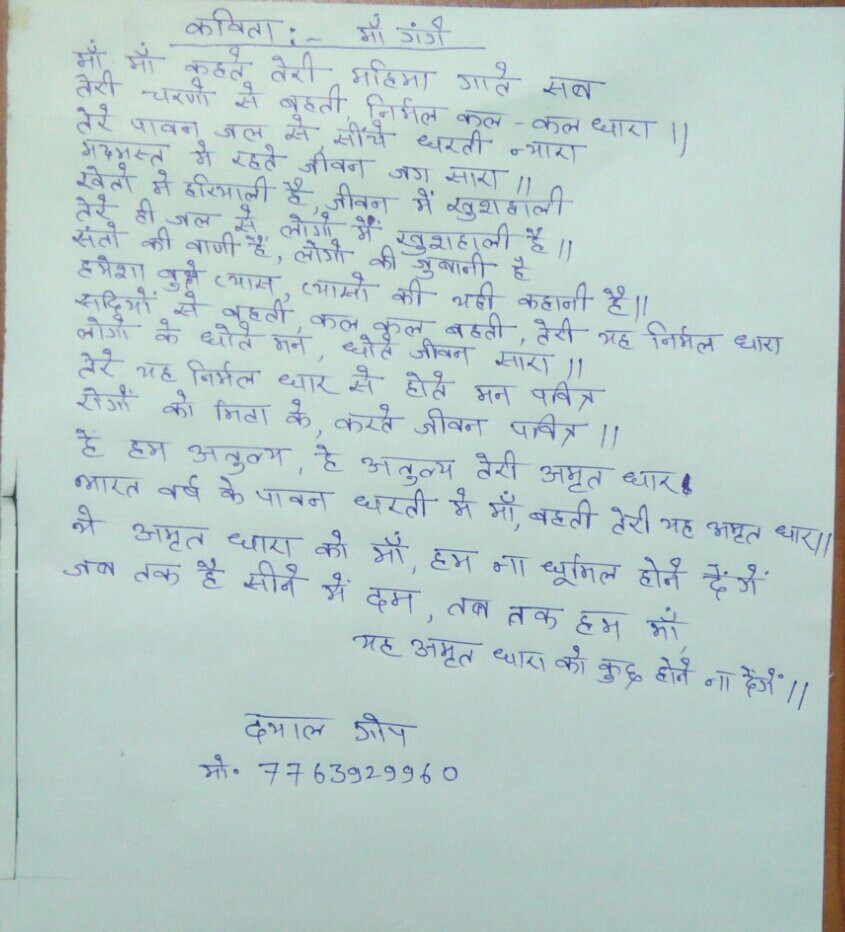 कविता :- माँ गंगे
माँ माँ कहते तेरी महिमा गाते सब
तेरी चरणों से बहती, निर्मल कल-कल धारा ||
तेरे पावन जल से, सींचे धरती न्यारा
मदमस्त में रहते जीवन जग सारा ||
खेतों में हरियाली है, जीवन में खुशहाली
तेरे ही जल से, लोगों में खुशहाली है ||
संतो की वाणी है, लोगो की जुबानी है
हमेशा बुझे प्यास, प्यासो की यही कहानी है ||
सदियों से बहती, कल कल बहती, तेरी यह निर्मल धारा
लोगो के धोते मन, धोते जीवन सारा ||
तेरे यह निर्मल धार से होते मन पवित्र
रोगों को मिटा के, करते जीवन पवित्र ||
है हम अतुल्य, है अतुल्य तेरी अमृत धार।
भारत वर्ष के पावन धरती में माँ, बहती तेरी यह अमृत धार ||
ये अमृत धारा को माँ, हम ना धूमिल होने देंगें
जब तक है सीने में दम, तब तक हम माँ,
यह अमृत धारा को कुछ होने ना देंगें ||
दयाल गोप
मो. 7763929960